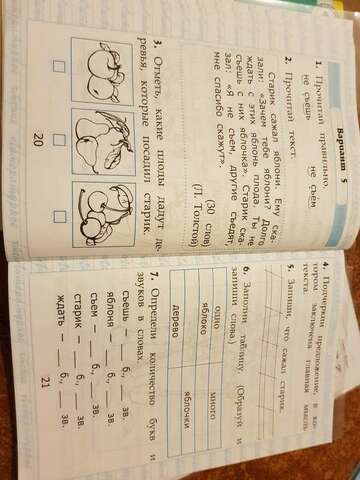 Вариант 5
1. Прочитай правильно.
не съешь не съём
2. Прочитай текст.
Старик сажал яблони. Ему ска-
зали: «Зачем тебе яблони? Долго
ждать с этих яблонь плода. Ты не
съешь с них яблочка». Старик ска-
зал: «Я не съем, другие съедят,
мне спасибо скажут».
(30 слов)
(Л. Толстой)
3. Отметь, какие плоды дадут де-
ревья, которые посадил старик.
20
4. Подчеркни предложение, в ко-
тором заключена главная мысль
текста.
5. Запиши, что сажал старик.
6. Заполни таблицу. (Образуй и
запиши слова.)
одно много
яблоко яблочки
дерево
7. Определи количество букв и
звуков в словах.
съешь — __ б., __ зв.
яблоня — __ б., __ зв.
съем — __ б., __ зв.
старик — __ б., __ зв.
ждать — __ б., __ зв.
21